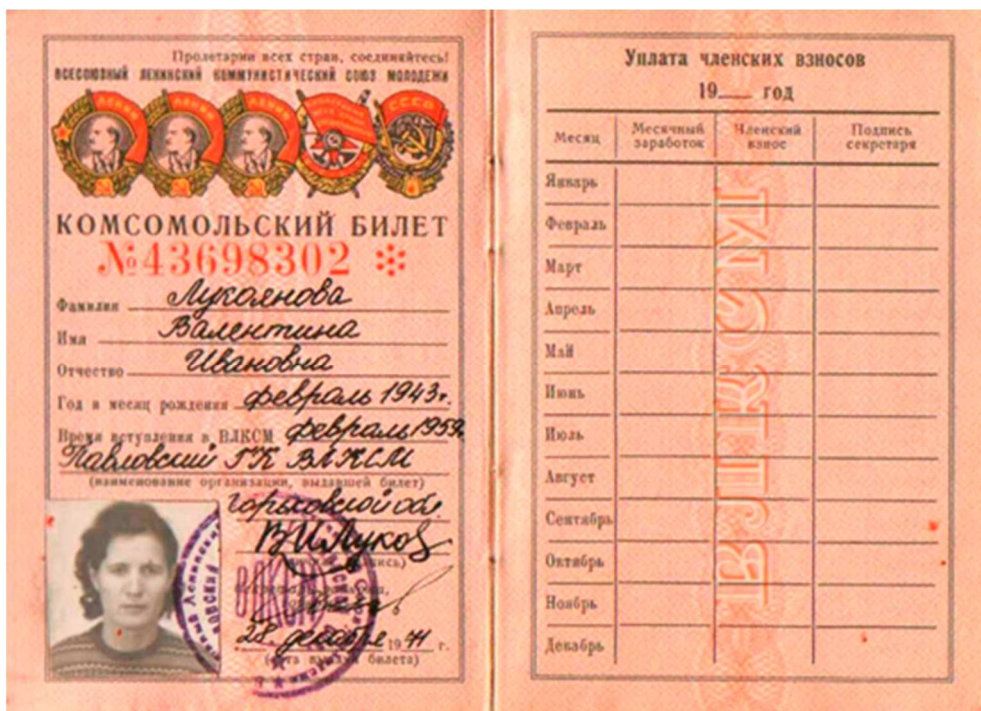 Пролетарии всех стран, соединяйтесь!
ВСЕСОЮЗНЫЙ ЛЕНИНСКИЙ КОММУНИСТИЧЕСКИЙ СОЮЗ МОЛОДЕЖИ
ЛЕНИН ЛЕНИН ЛЕНИН СССР
КОМСОМОЛЬСКИЙ БИЛЕТ
№43698302
Фамилия Лукоянова
Имя Валентина
Отчество Ивановна
Год и месяц рождения февраль 1943г.
Время вступления в ВЛКСМ февраль 1959г.
Павловский ГК ВЛКСМ
(наименование организации, выдавшей билет)
Горьковской обл.
ВИЛуков
28 декабря 19 г.
(дата выдачи билета)
ВЛКСМ
Уплата членских взносов
19 год
Месяц Месячный заработок Членский взнос Подпись секретаря
Январь
Февраль
Март
Апрель
Май
Июнь
Июль
Август
Сентябрь
Октябрь
Ноябрь
Декабрь
ВЛКСМ